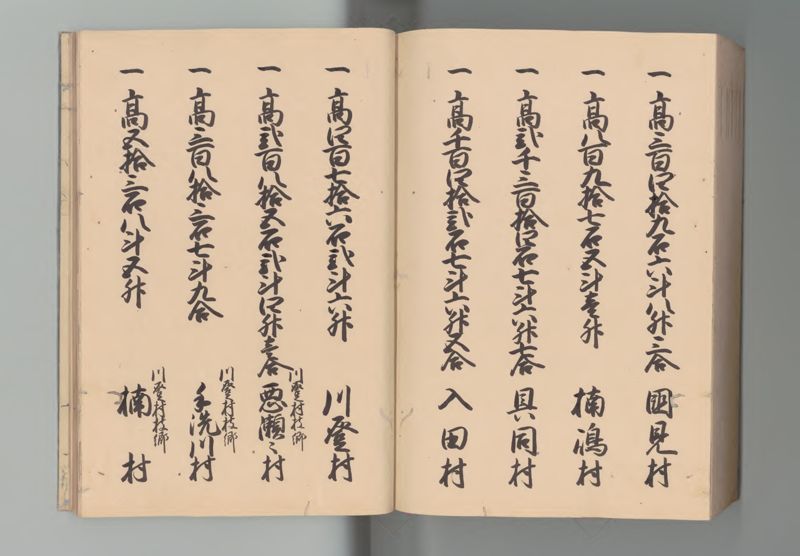 一 高三百四拾九石六斗八升三合 國見村
一 高八百九拾七石五斗壱升 楠嶋村
一 高弐千三百拾四石七斗六升七合 具同村
一 高千百四拾弐石七斗六升五合 入田村
一 高四百七拾六石弐斗六升 川登村
一 高弐百八拾五石弐斗四升壱合 川登村枝郷 悪瀬々村
一 高三百八拾三石七斗九合 川登村枝郷 手洗川村
一 高五拾三石八斗五升 川登村枝郷 楠村